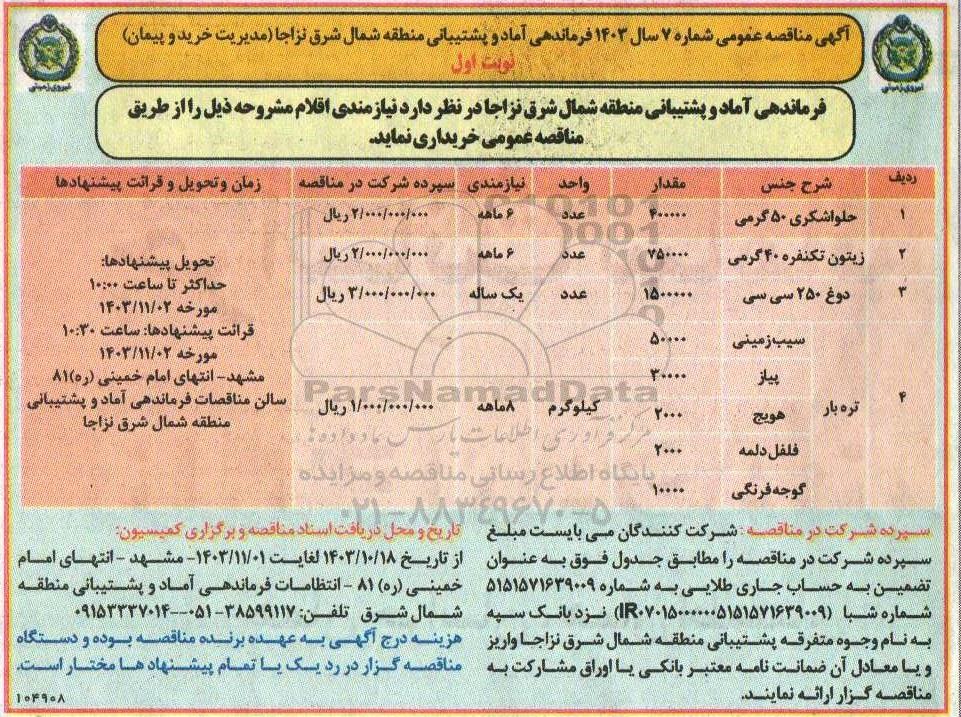 آگهی مناقصه عمومی شماره ۷ سال ۱۴۰۳ فرماندهی آماد و پشتیبانی منطقه شمال شرق نزاجا (مدیریت خرید و پیمان)
نوبت اول
نیروی زمینی
نیروی زمینی
فرماندهی آماد و پشتیبانی منطقه شمال شرق نزاجا در نظر دارد نیازمندی اقلام مشروحه ذیل را از طریق
مناقصه عمومی خریداری نماید.
ردیف شرح جنس مقدار واحد نیازمندی سپرده شرکت در مناقصه زمان و تحویل و قرائت پیشنهادها
۱ حلواشکری ۵۰ گرمی ۴۰۰۰۰۰ عدد ۶ ماهه ۲/۰۰۰/۰۰۰/۰۰۰ ریال
۲ زیتون تکنفره ۴۰ گرمی ۷۵۰۰۰۰ عدد ۶ ماهه ۲/۰۰۰/۰۰۰/۰۰۰ ریال
۳ دوغ ۲۵۰ سی سی ۱۵۰۰۰۰۰ عدد یک ساله ۳/۰۰۰/۰۰۰/۰۰۰ ریال
۴ تره بار کیلوگرم ۸ماهه ۱/۰۰۰/۰۰۰/۰۰۰ ریال
سیب‌زمینی ۵۰۰۰۰
پیاز ۳۰۰۰۰
هویج ۲۰۰۰
فلفل دلمه ۲۰۰۰
گوجه‌فرنگی ۱۰۰۰۰
تحویل پیشنهادها:
حداکثر تا ساعت ۱۰:۰۰
مورخه ۱۴۰۳/۱۱/۰۲
قرائت پیشنهادها: ساعت ۱۰:۳۰
مورخه ۱۴۰۳/۱۱/۰۲
مشهد- انتهای امام خمینی (ره)۸۱
سالن مناقصات فرماندهی آماد و پشتیبانی
منطقه شمال شرق نزاجا
ParsNamadData
مرکز فرآوری اطلاعات پارس نماد داده ها
پایگاه اطلاع رسانی مناقصه و مزایده
۰۲۱-۸۸۳۴۹۶۷۰-۵
سپرده شرکت در مناقصه : شرکت کنندگان می بایست مبلغ
سپرده شرکت در مناقصه را مطابق جدول فوق به عنوان
تضمین به حساب جاری طلایی به شماره ۵۱۵۱۵۷۱۶۳۹۰۰۹
شماره شبا (IR۰۷۰۱۵۰۰۰۰۰۰۵۱۵۱۵۷۱۶۳۹۰۰۹) نزد بانک سپه
به نام وجوه متفرقه پشتیبانی منطقه شمال شرق نزاجا واریز
و یا معادل آن ضمانت نامه معتبر بانکی یا اوراق مشارکت به
مناقصه گزار ارائه نمایند.
تاریخ و محل دریافت اسناد مناقصه و برگزاری کمیسیون:
از تاریخ ۱۴۰۳/۱۰/۱۸ لغایت ۱۴۰۳/۱۱/۰۱- مشهد - انتهای امام
خمینی (ره) ۸۱ - انتظامات فرماندهی آماد و پشتیبانی منطقه
شمال شرق تلفن: ۳۸۵۹۹۱۱۷-۰۵۱--۰۹۱۵۳۳۳۷۰۱۴
هزینه درج آگهی به عهده برنده مناقصه بوده و دستگاه
مناقصه گزار در رد یک یا تمام پیشنهاد ها مختار است.
۱۰۴۹۰۸